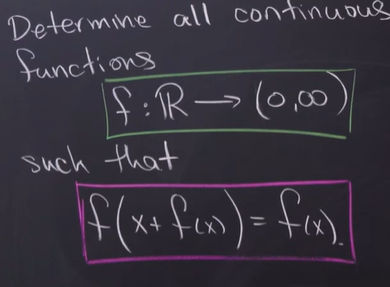 Determine all continuous
functions
f : ℝ → (0,∞)
such that
f(x+f(x)) = f(x).